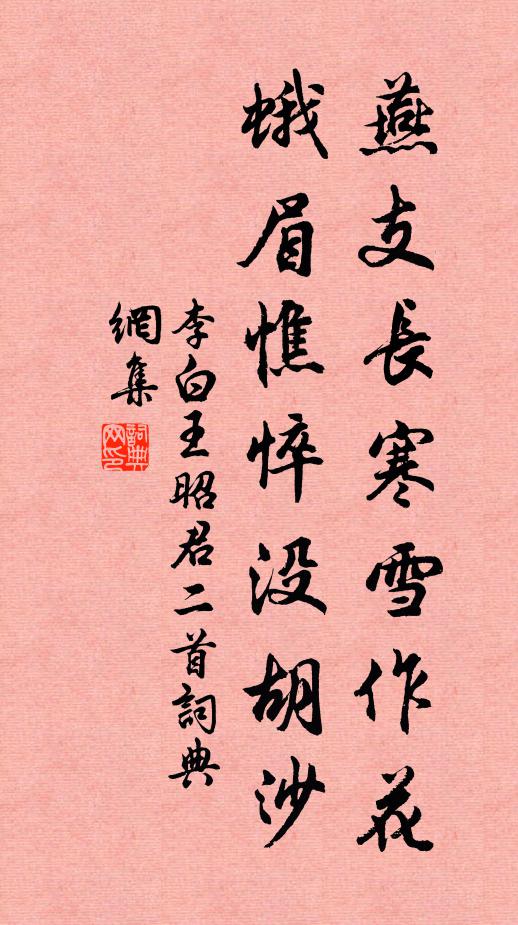 燕支長寒雪作花
蛾眉憔悴没胡沙
李白王昭君二首詞典
網集
詞典
网印